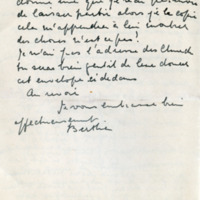 donné une que j'ai
de laisser partir alors je la copie
cela m'apprendra à lui montrer
des choses n'est-ce pas!
Je n'ai pas l'adresse des
tu seras bien gentil de leur donner
cet envelope ci dedans
Au revoir.
Je vous embrasse bien
affectueusement.
Berthe